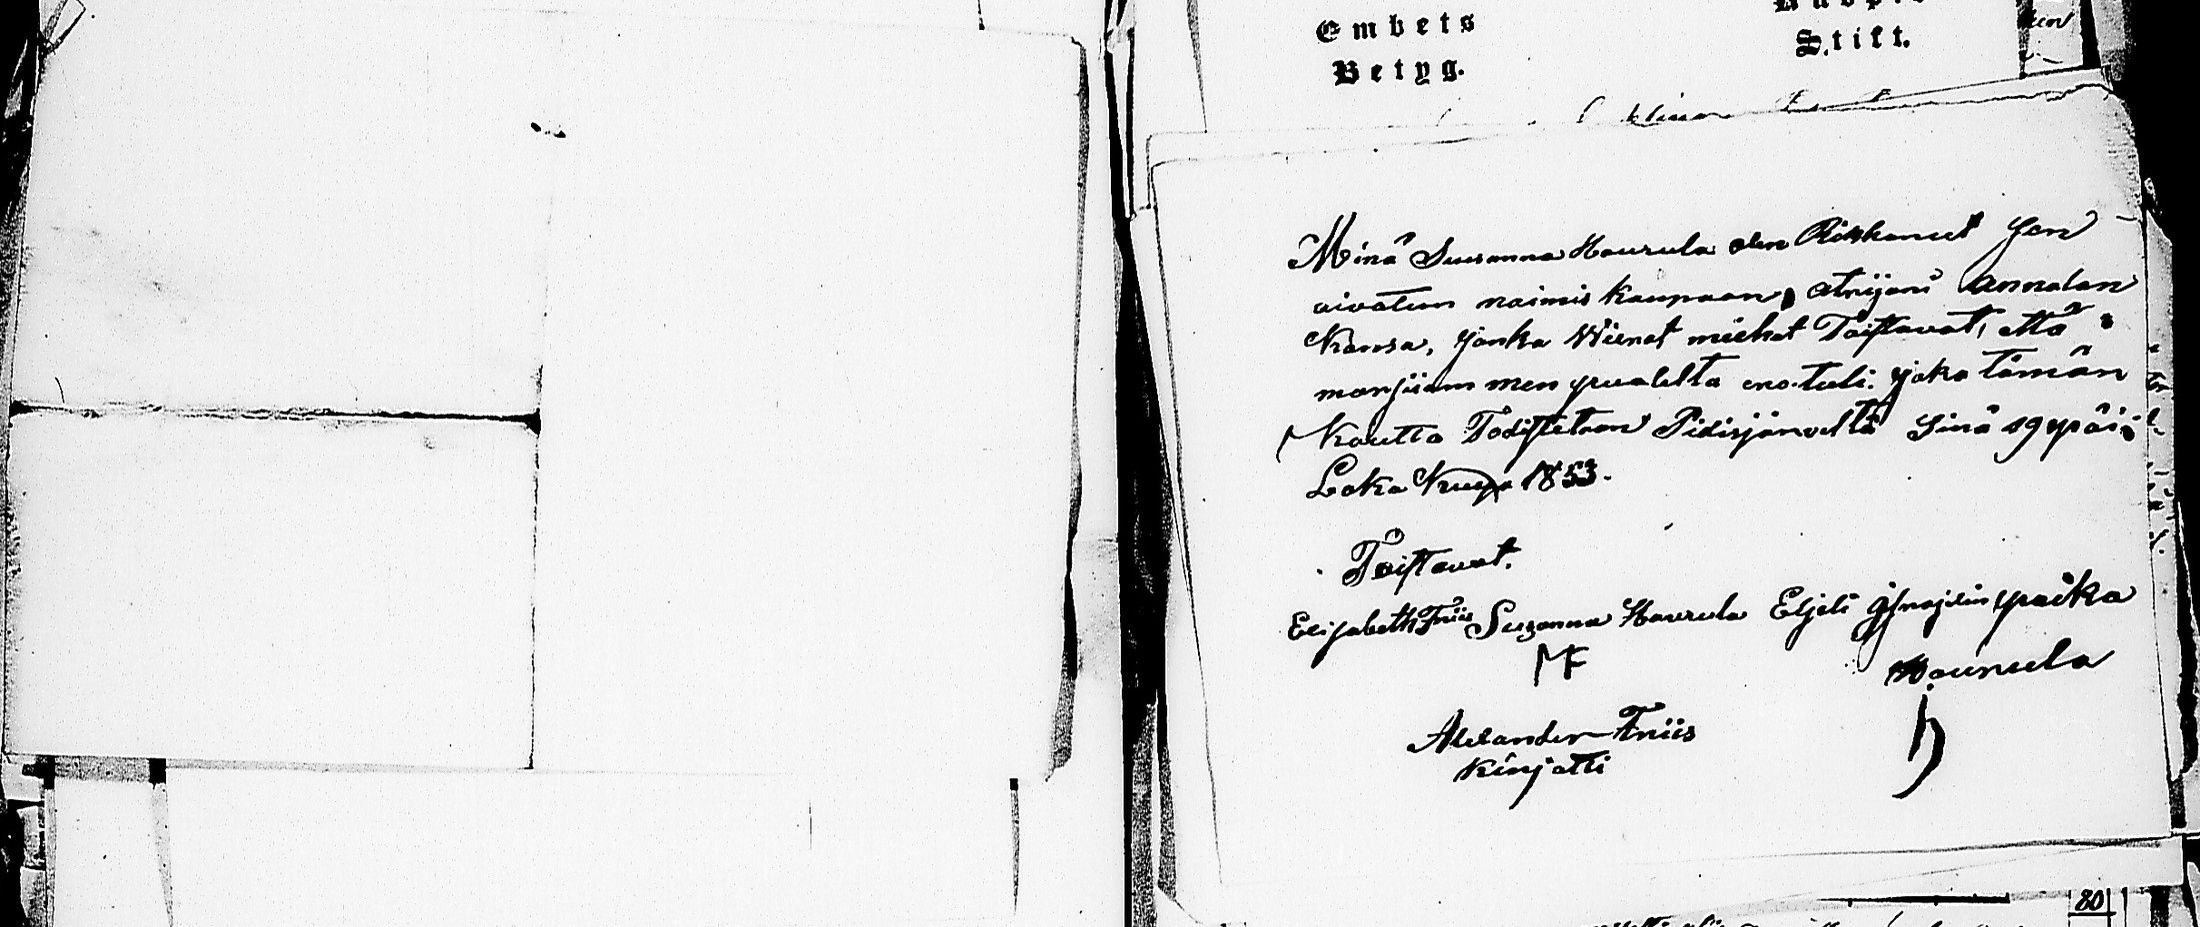 Embets
Betyg.
Stift.
Minä Susanna Haurula olen Rikkonut Jen
aivotun naimis kaupaan, Atrijani Annalan
Kansa, jonka Wierat miehet Toistavat, että
marjiian men puolelta ero tuli. joka tämän
Kautta Todistetaan Pidisjärveltä Sinä 19 päi
Loka Kuuya 1853.
Toistavat.
Elisabeth Friis Susanna Haurula Eljeli paika
Haurula
Alexander Friis
Kirjotti
80